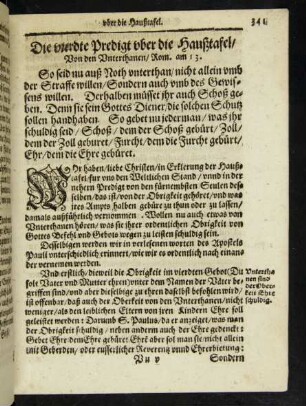 vber die Haußtafel. 341
Die vierdte Predigt vber die Haußtafel/
Von den Vnterthanen/ Rom. am 13.
So seid nu auß Noth vnterthan/ nicht allein vmb
der Straffe willen/ Sondern auch vmb des Gewis-
sens willen. Derhalben müsset jhr auch Schoß ge-
ben. Denn sie sein Gottes Diener/ die solchen Schutz
sollen handhaben. So gebet nu jederman/ was jhr
schuldig seid/ Schoß/ dem der Schoß gebürt/ Zoll/
dem der Zoll gebüret/ Furcht/ dem die Furcht gebürt/
Ehr/ dem die Ehre gebüret.
WIr haben/ liebe Christen/ in Erklerung der Hauß-
tafel/ fur vns den Weltlichen Stand/ vnnd in der
nehern Predigt von den fürnembsten Seulen des-
selben/ das ist/ von der Obrigkeit gehöret/ vnd was
jres Ampts halben gebürt zu thun oder zu lassen/
damals außführlich vernommen. Wollen nu auch etwas von
Vnterthanen hören/ was sie jhrer ordentlichen Obrigkeit von
Gottes Befehl vnd Gebots wegen zu leisten schuldig sein.
Desselbigen werden wir in verlesenen worten des Apostels
Pauli vnterschiedlich erinnert/ wie wir es ordentlich nach einan-
der vernemen werden.
Vnd erstlich/ dieweil die Obrigkeit im vierdten Gebot (Du
solt Vater vnd Mutter ehren) vnter dem Namen der Väter be-
griffen sind/ vnd aber dieselbige zu ehren daselbst befohlen wird/
ist offenbar/ daß auch der Oberkeit von den Vnterthanen/ nicht
weniger/ als den leiblichen Eltern von jren Kindern Ehre soll
geleistet werden: Darumb S. Paulus/ da er anzeiget/ was man
der Obrigkeit schuldig/ neben anderm auch der Ehre gedenckt:
Gebet Ehre dem Ehre gebürt: Ehre aber sol man sie nicht allein
mit Geberden/ oder eusserlicher Reverentz vnnd Ehrerbietung:
Vu v Sondern
Vntertha-
nen sind
der Ober-
keit Ehre
schuldig.